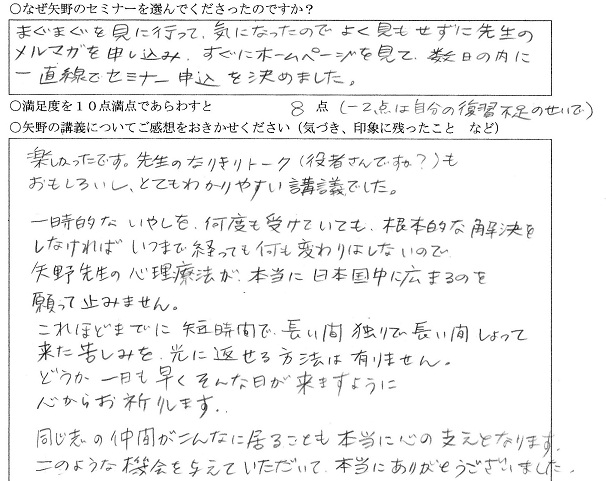 ○なぜ矢野のセミナーを選んでくださったのですか？
まぐまぐを見に行って、気になったので よく見もせずに先生の
メルマガを申し込み、すぐにホームページを見て、数日の内に
一直線でセミナー申込 を決めました。
○満足度を１０点満点であらわすと 8 点 (－2点は自分の復習不足のせいで)
○矢野の講義についてご感想をおきかせください（気づき、印象に残ったこと など）
楽しかったです。先生のなりきりトーク(役者さんですか？)も
おもしろいし、とてもわかりやすい講議でした。
一時的な いやしを、何度も受けていても、根本的な解決を
しなければ いつまで経っても何も変わりはしないので
矢野先生の心理療法が、本当に日本国中に広まるのを
願って止みません。
これほどまでに 短時間で、長い間 独りで長い間しょって
来た苦しみを、光に返せる方法は有りません。
どうか一日も早く そんな日が来ますように
心からお祈りします。
同じ志の仲間がこんなに居ることも本当に心の支えとなります。
このような機会を与えていただいて、本当にありがとうございました。